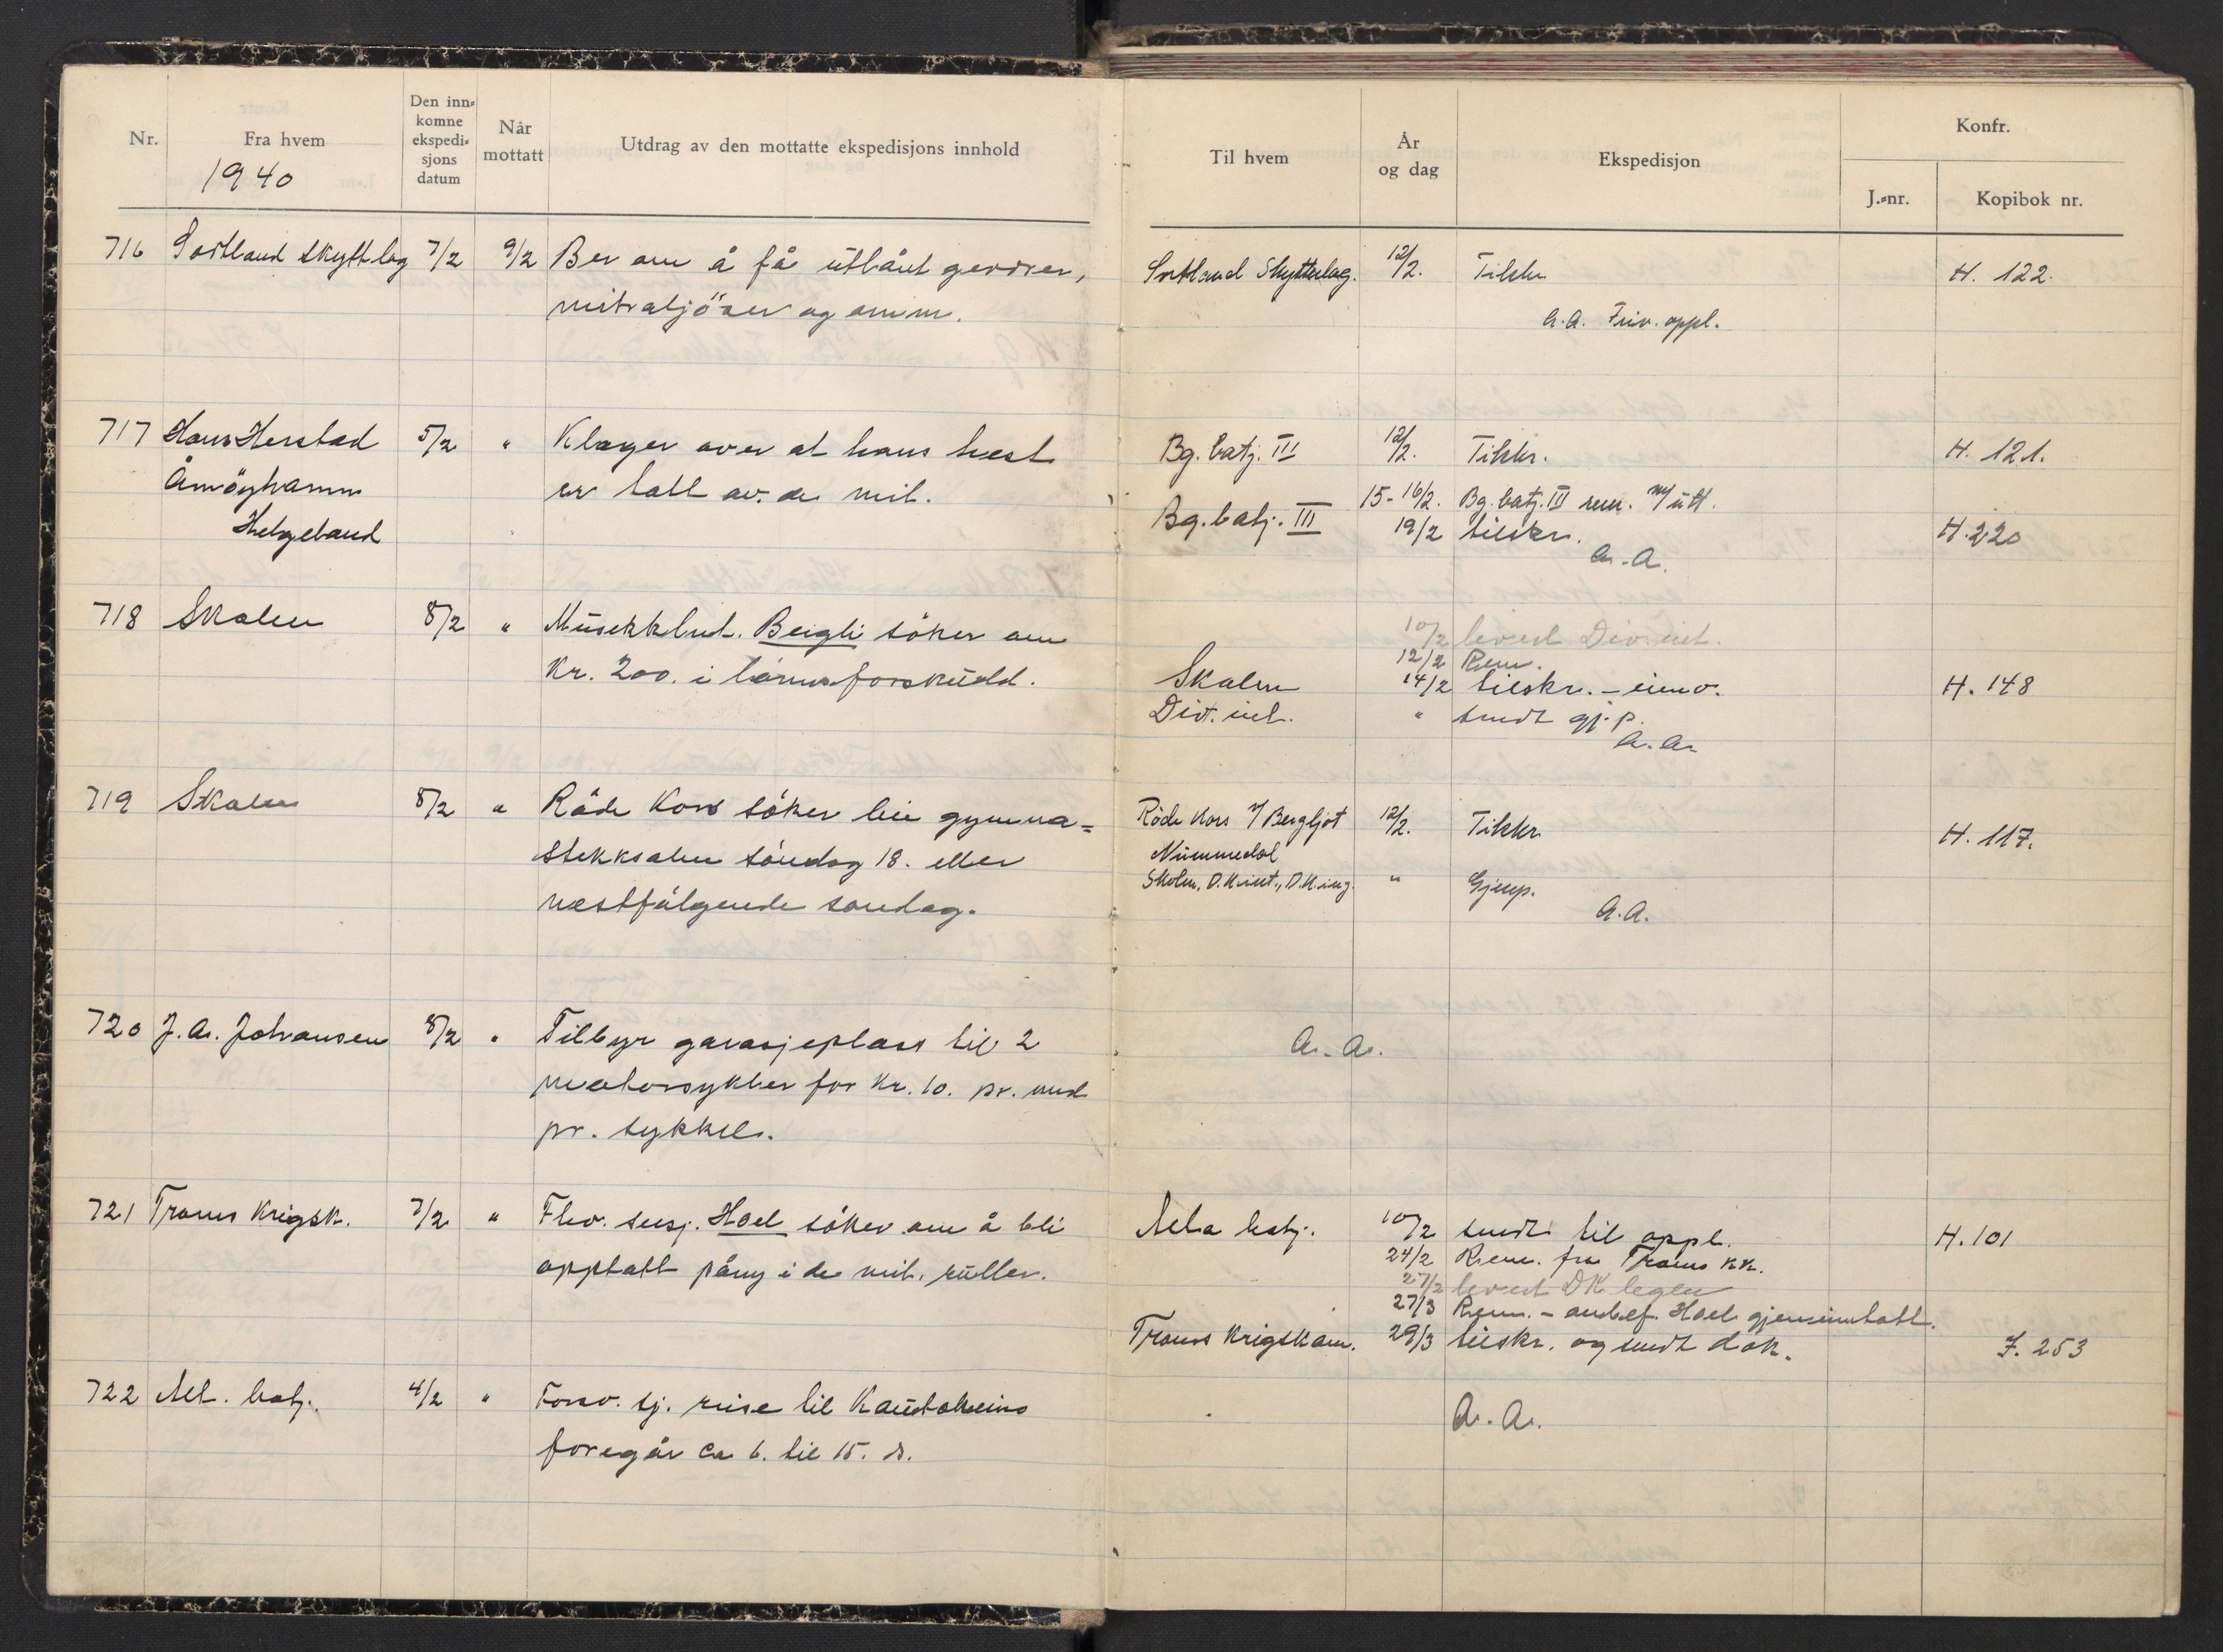 Nr.
Fra hvem
Den inn-
komne
ekspedi-
sjons
datum
Når
mottatt
Utdrag av den mottatte ekspedisjons innhold
1940
716 Sortland Skyttlag 7/2 9/2 Ber om å få utlånt geværer,
mitraljöser og amm.
717 Hans Herstad 5/2 " Klager over at hans hest
Åmöyhamn er tatt av de mil.
Helgeland
718 Skolen 8/2 " Musikkluit. Beigli söker om
Kr. 200. i lönnsforskudd.
719 Skolen 8/2 " Röde Kors söker leie gymna=
stikksalen söndag 18. eller
nestfölgende sondag.
720 J. A. Johansen 8/2 " Tilbyr garasjeplass til 2
motorsykler for Kr. 10. pr. mnd
pr. sykkel.
721 Troms Krigsk. 7/2 " Flv. sersj. Hoel söker om å bli
opptatt påny i de mil. ruller.
722 Alt. batj. 4/2 " Forsv. sj. reise til Kautokeino
foregår ca 6. til 15. ds.
Til hvem
År
og dag
Ekspedisjon
Konfr.
J.-nr.
Kopibok nr.
Sortland Skytterlag. 12/2. Tilskr. H. 122.
A.A. Friv. oppl.
Bg. batj. III 12/2. Tilskr. H. 121.
15-16/2. Bg. batj. III rem. m/utt.
Bg. batj. III 19/2 tilskr. H. 220
A.A.
10/2 levert Div. int.
12/2 Rem.
Skolen 14/2 tilskr. - innv. H. 148
Div. int. " sendt gj.p.
A.A.
Röde Kors v/ Bergljot 12/2. Tilskr. H. 117.
Nummedal
Skolen, D.K.int., D.K.ing. " Gjenp.
A.A.
A.A.
Alta batj. 10/2 sendt til oppl. H. 101
24/2 Rem. fra Troms KK.
27/2 levert DK legen
27/3 Rem. - anbef. Hoel gjeninntatt.
Troms Krigskom. 29/3 tilskr. og sendt dok. J. 253
A.A.